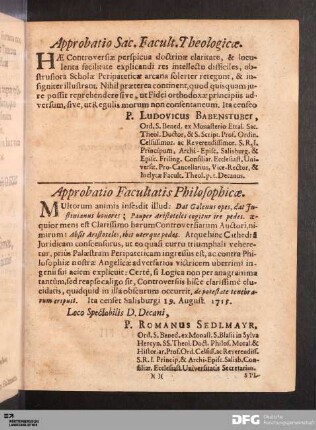 Approbatio Sac. Facult. Theologicæ.
HÆ Controversiæ perspicua doctrinæ claritate, & lucu-
lenta facilitate explicandi res intellectu difficiles, ob-
strusiora Scholæ Peripateticæ arcana solerter retegunt, & in-
signiter illustrant. Nihil præterea continent, quod quisquam ju-
re possit reprehendere sive, ut Fidei orthodoxæ principiis ad-
versum, sive, ut Regulis morum non consentaneum. Ita censeo
P. LUDOVICUS BABENSTUBER,
Ord. S. Bened. ex Monasterio Ettal. Sac.
Theol. Doctor, & S. Script. Prof. Ordin.
Celsissimi. ac Reverendissimi. S. R. I.
Principum, Archi-Episc. Salisburg. &
Episc. Frising. Consiliar. Ecclesiast. Univer-
sit. Pro-Cancellarius, Vice-Rector, &
Inclytæ Facult. Theol. p. t. Decanus.
Approbatio Facultatis Philosophicæ.
MUltorum animis insedit illud: Dat Galenus opes, dat Ju-
stinianus honores; Pauper Aristoteles cogitur ire pedes.
æquior mens est Clarissimo harum Controversiarum Authori, ni-
mirum: aliis Aristoteles, huic utetque pedes. Atque hinc Cathedrâ
Juridicam conscensurus, ut eo quasi curru triumphali vehere-
tur, prius Palæstram Peripateticam ingressus est, ac contra Phi-
losophiæ nostræ Angelicæ adversarios victricem ubertim in-
genii sui aciem explicuit: Certè, si Logica non per anagramma
tantùm, sed reapse caligo sit, Controversiis hisce clarissimè elu-
cidatis, quidquid in illa obscurum occurrit, de potestate tenebra-
rum eripuit. Ita censet Salisburgi 19. August. 1715.
Loco Spectabilis D. Decani,
P. ROMANUS SEDLMAYR,
Ord. S. Bened. ex Monast. S. Blasii in Sylva
Hercyn. SS. Theol. Doct. Philos. Moral &
Histoiar. Prof. Ord. Celsiss. ac Reverendiss.
S. R. I. Princip. & Archi-Episc. Salisb. Con-
siliar. Ecclesiast. Universitatis Secretarius.
X 2 SYL-
DFG Deutsche
Forschungsgemeinschaft